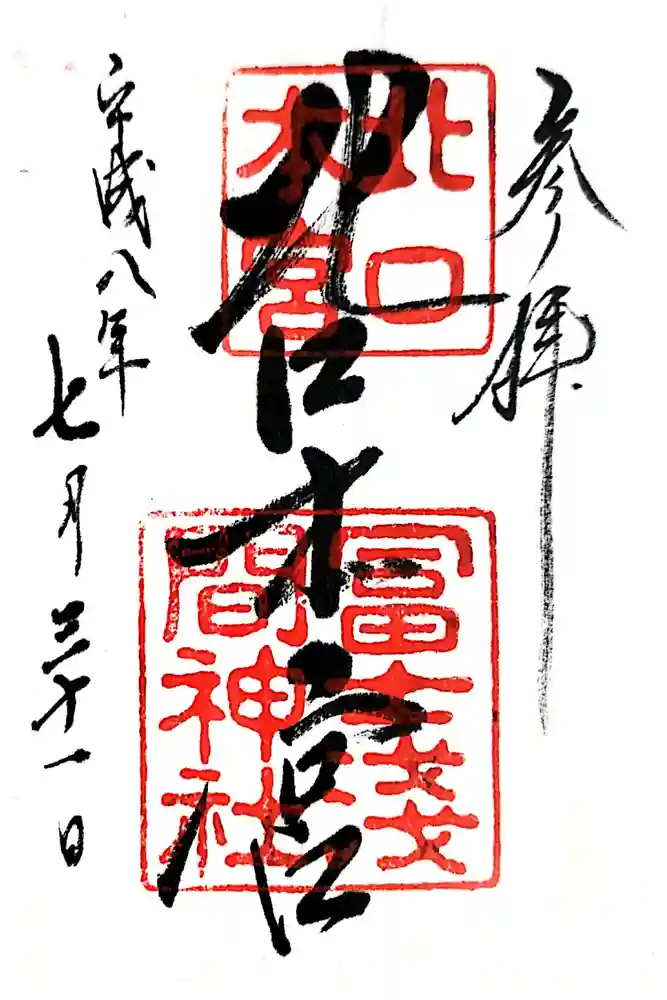 参拝
北口本宮
北口
本宮
冨士淺
間神社
平成八年
七月三十一日